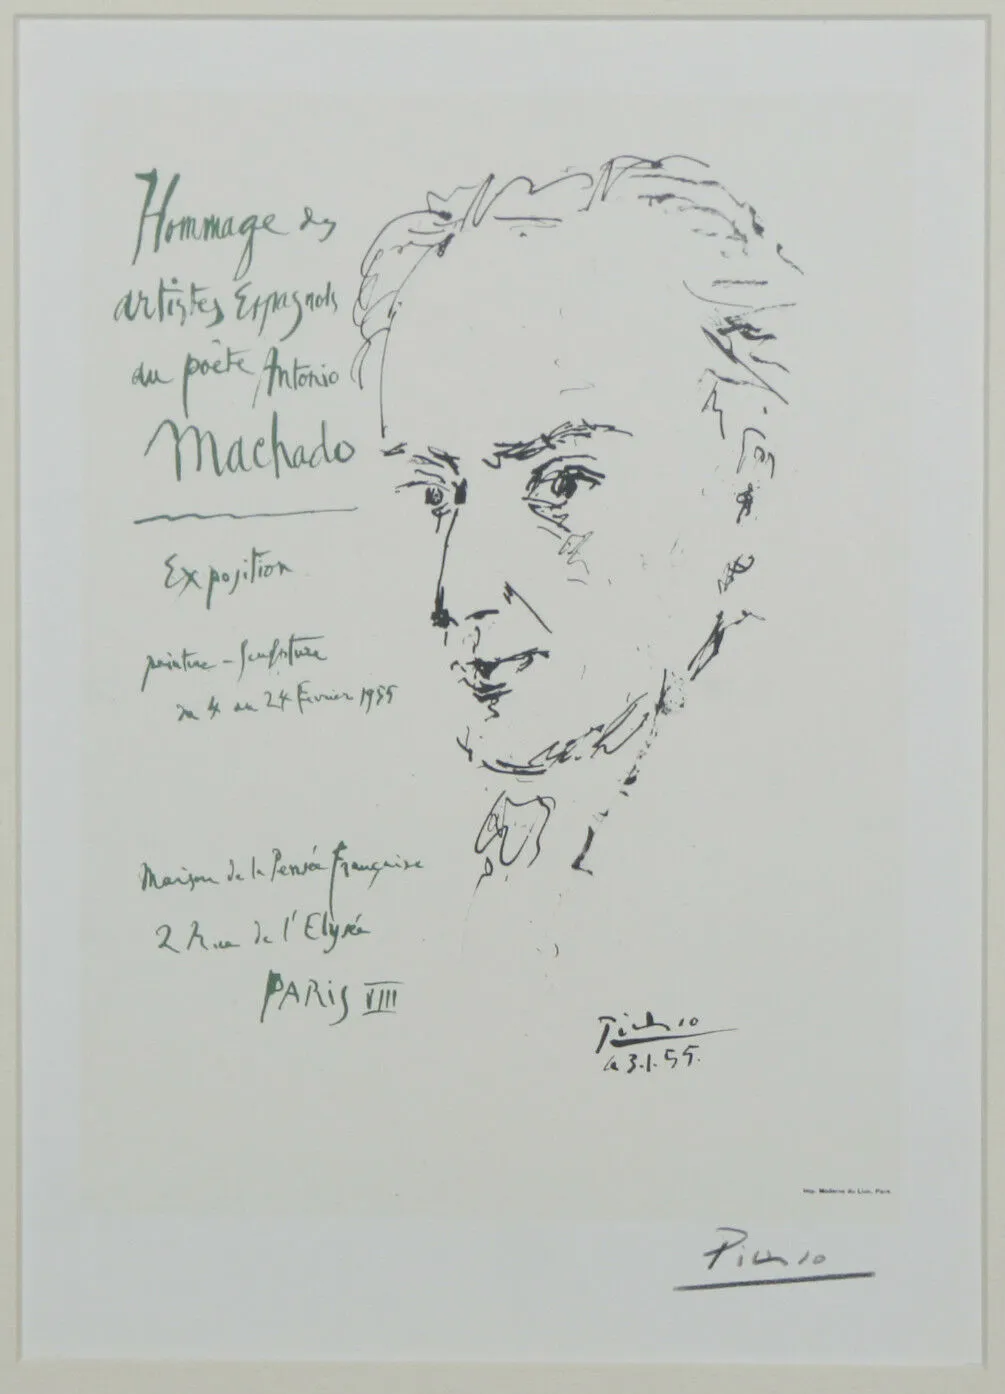 Hommage des
artistes Espagnols
au poète Antonio
Machado
Exposition
peinture - Sculpture
du 4 au 24 Fevrier 1955
Maison de la Pensée Française
2 Rue de l'Elysée
PARIS VIII
Picasso
le 3.1.55.
Imp. Moderne du Lion, Paris
Picasso